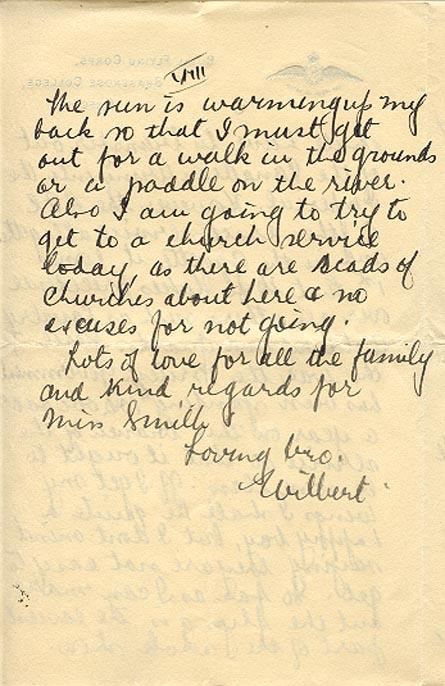 VIII
The sun is warming up my
back so that I must get
out for a walk in the grounds
or a paddle on the river.
Also I am going to try to
get to a church service
today, as there are scads of
churches about here & no
excuses for not going.
Lots of love for all the family
and kind regards for
Miss Smith
Loving bro.
Wilbert